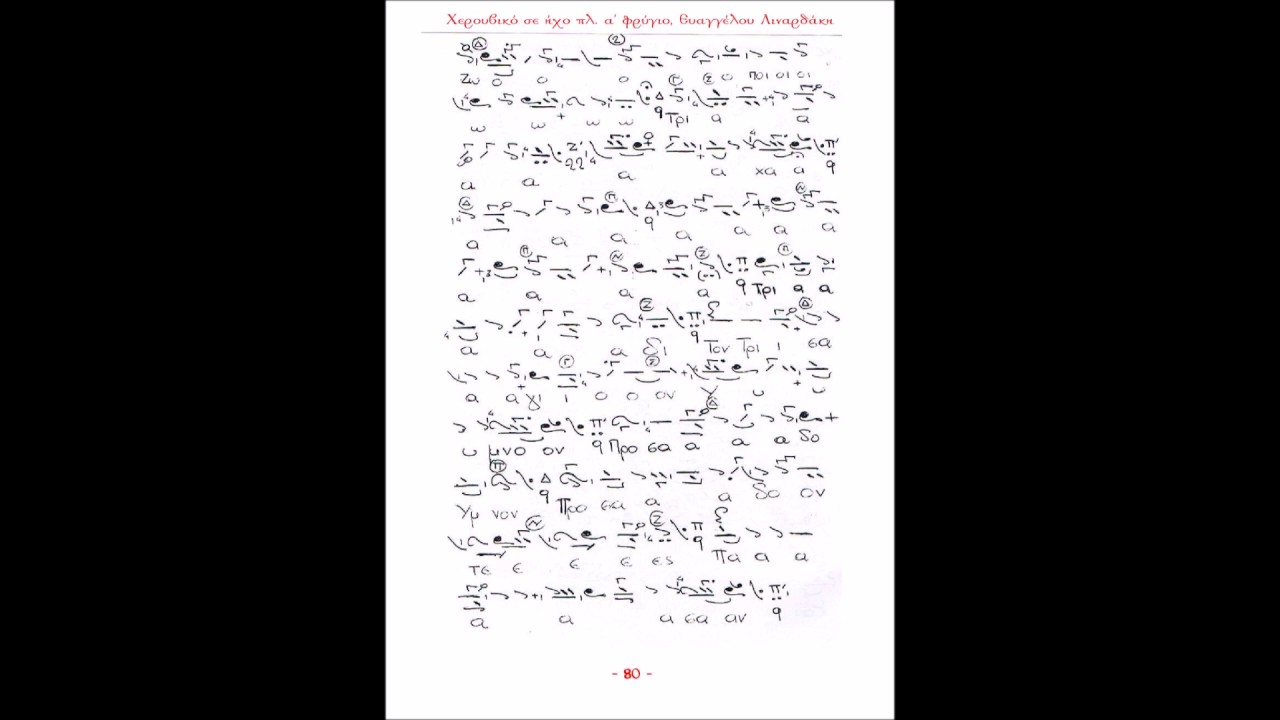 Χερουβικό σε ήχο πλ. α' φρύγιο, Ευαγγέλου Λιναρδάκη
Ζω ο ο ο ο ποι οι οι
ω ω ω ω Τρι α α
α α α α χα α
α α α α α α α
α α α α Τρι α α
α α α δι Τον Τρι ι σα
α α γι ι ο ο ον Υ υ υ
υ μνο ον Προ σα α α α δο
Υμ νον Προ σα α α δο ον
τε ε ε ε ες Πα α α
α α α σα αν
- 80 -